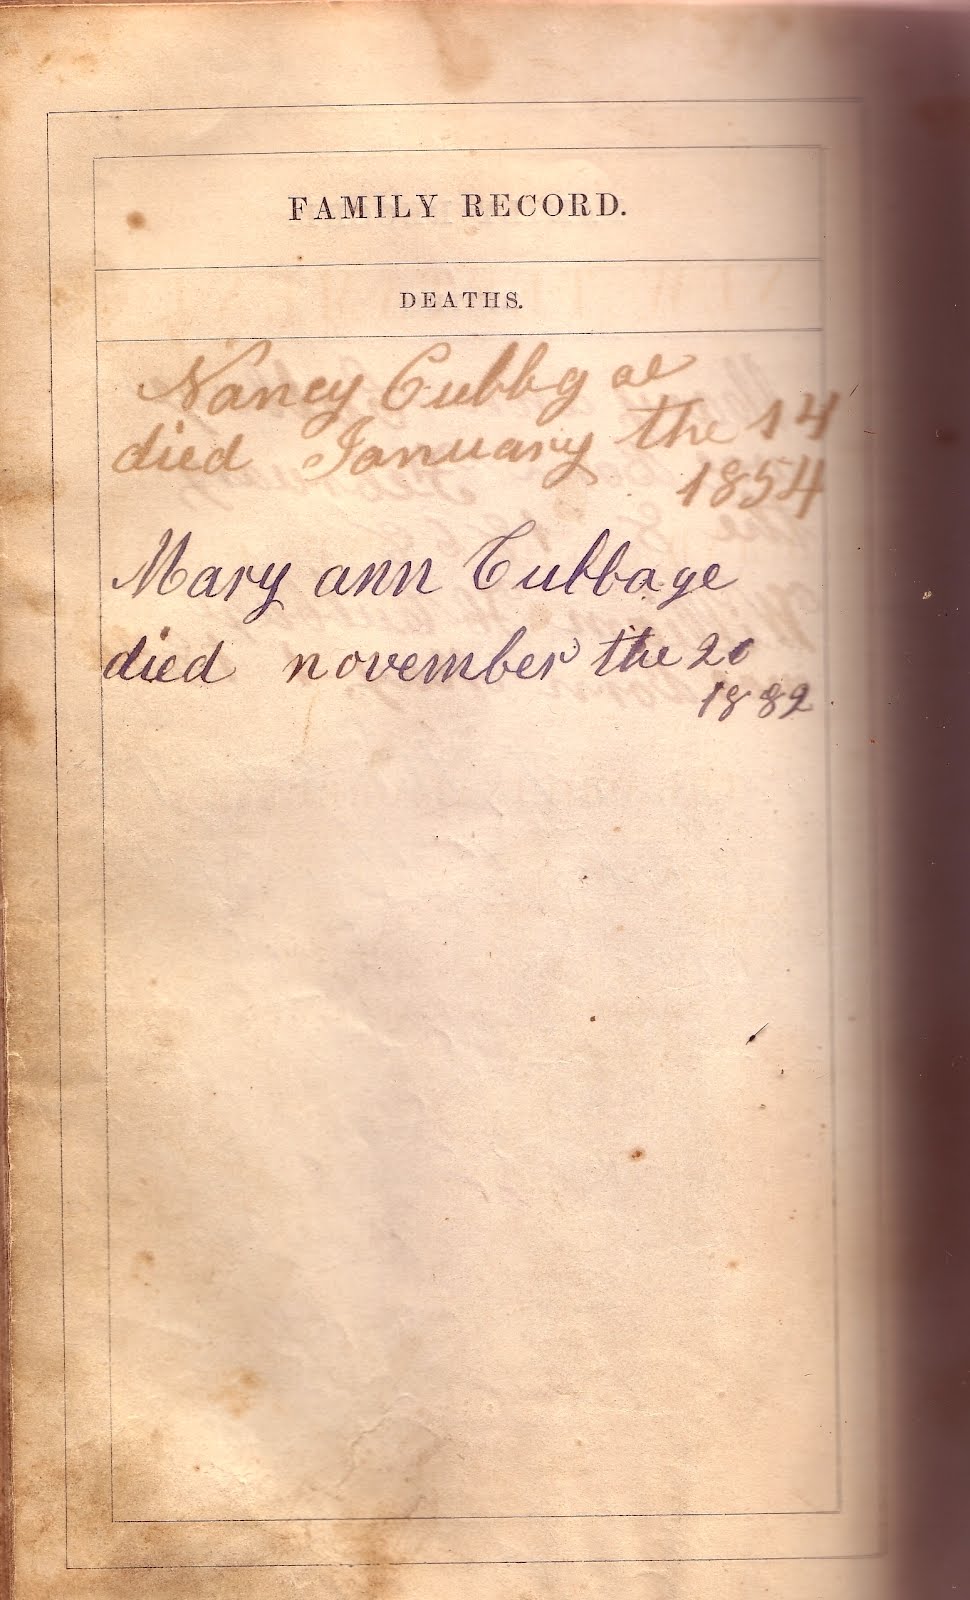 FAMILY RECORD.
DEATHS.
Nancy Cubbg ae
died January the 14
1854
Mary ann Cubbage
died november the 20
1882